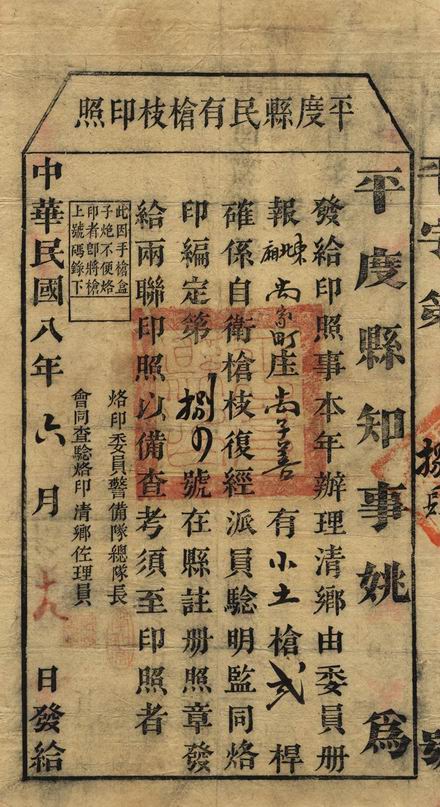 平度縣民有槍枝印照
平度縣知事姚 爲
發給印照事本年辦理清鄉由委員册
報東北廂尚家町庄尚子善有小土槍弍桿
確係自衛槍枝復經派員驗明監同烙
印編定第捌 號在縣註册照章發
給兩聯印照以備查考須至印照者
此因手槍盒
子炮不便烙
印者卽將槍
上號碼錄下
烙印委員警備隊總隊長
會同查驗烙印清鄉佐理員
中華民國八年六月十九日發給
字第